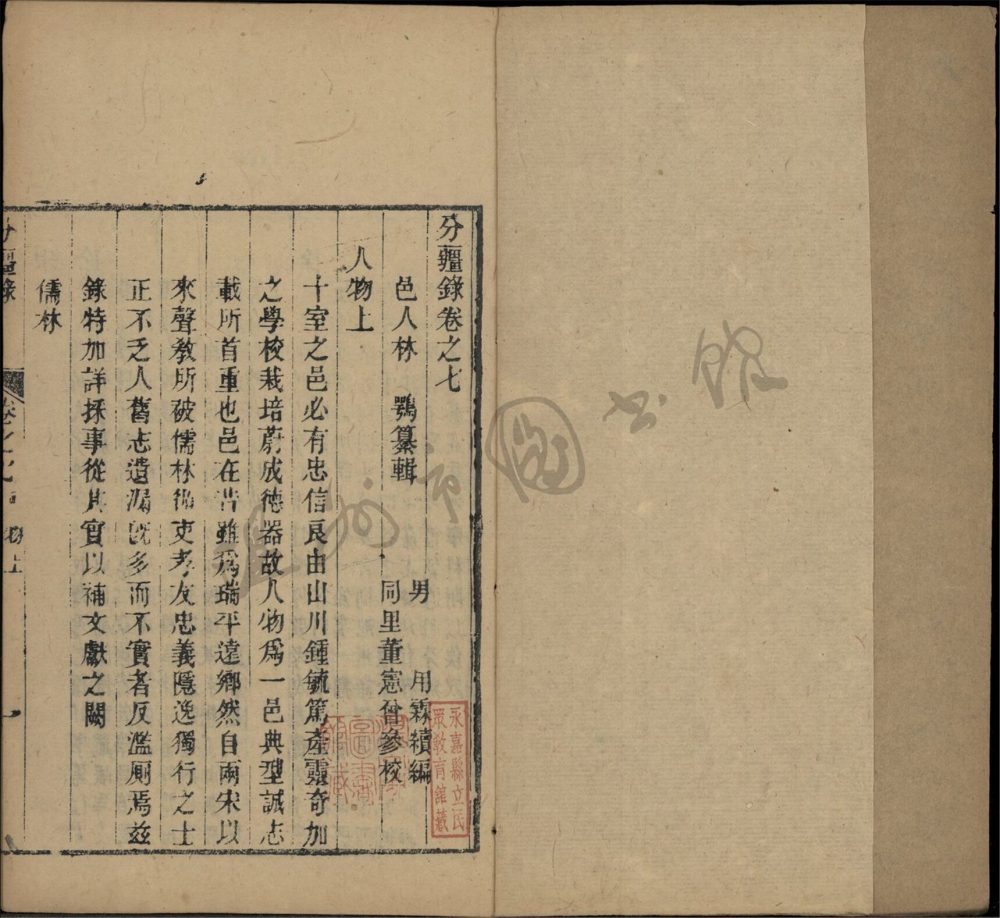 分疆錄卷之七
邑人林 鶚纂輯 男 用霖續編
同里董憲曾參校
人物上
十室之邑必有忠信良由山川鍾毓篤產靈奇加
之學校栽培蔚成德器故人物爲一邑典型誠志
載所首重也邑在昔雖爲瑞平遠鄉然自兩宋以
來聲教所被儒林循吏孝友忠義隱逸獨行之士
正不乏人舊志遺漏旣多而不實者反濫厠焉玆
錄特加詳採事從其實以補文獻之闕
儒林
分疆錄 卷之七 人物上 一
永嘉縣立民
衆教育館藏
溫州市圖書館